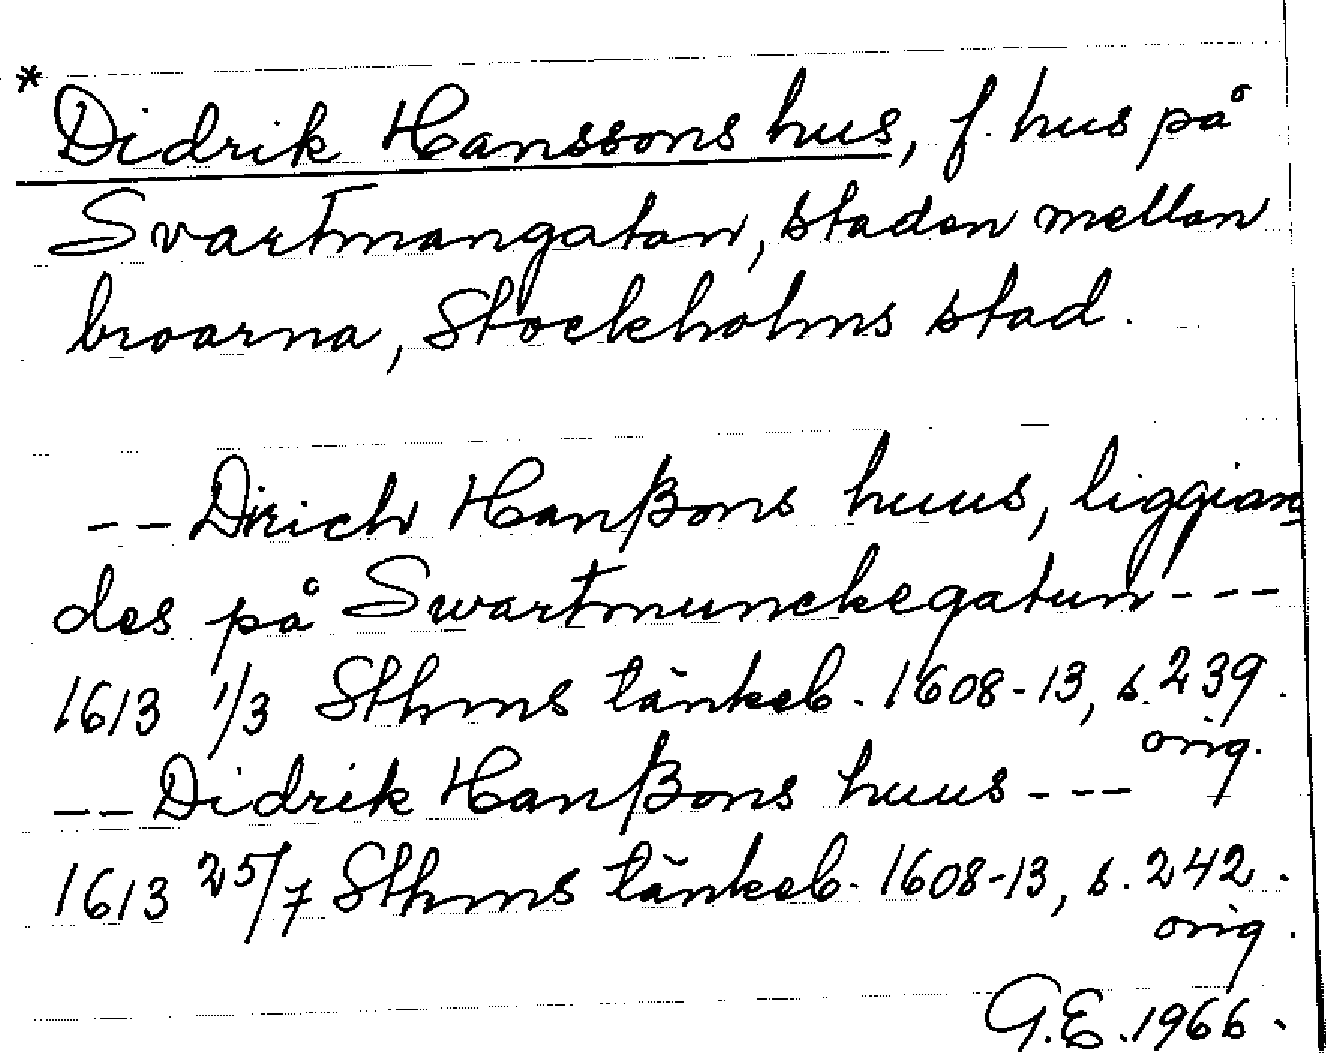 * Didrik Hanssons hus, f. hus på
Svartmangatan, staden mellan
broarna, Stockholms stad.
-- Dirich Hanßons huus, liggian
des på Swartmunckegatun ---
1613 1/3 Sthms tänkeb. 1608-13, s. 239.
orig.
-- Didrik Hanßons huus ---
1613 25/7 Sthms tänkeb. 1608-13, s. 242.
orig.
G.E. 1966.